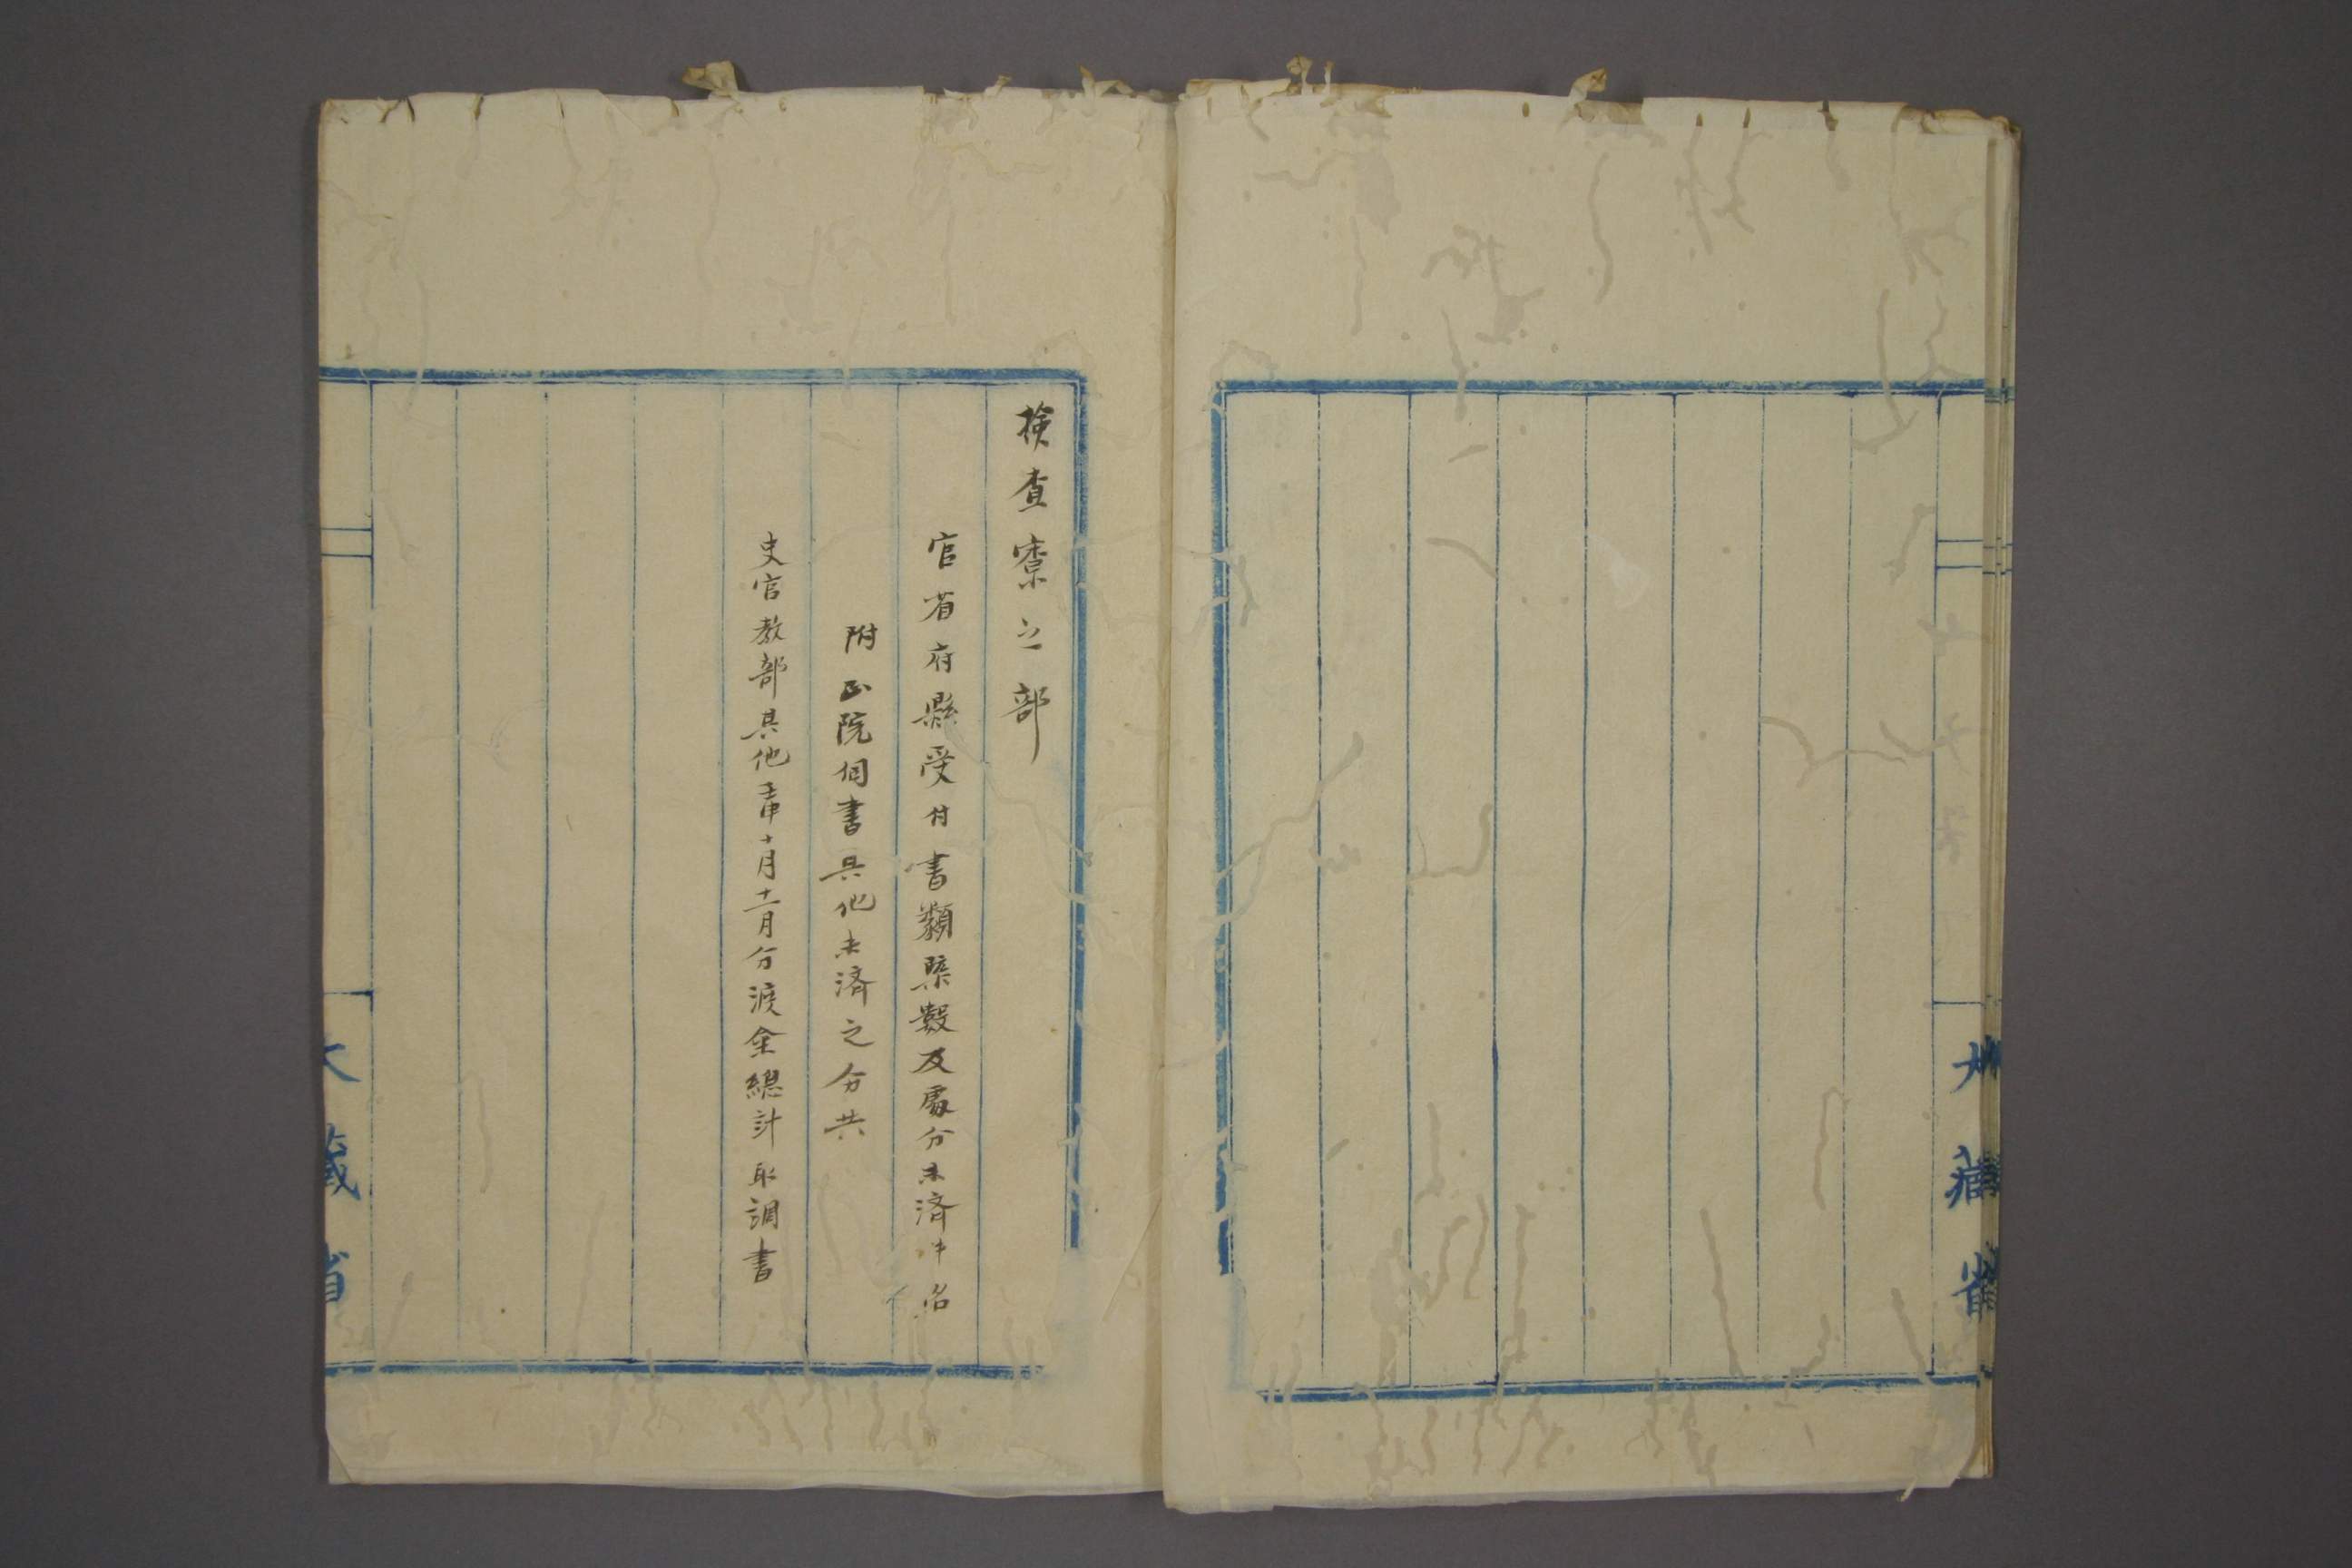 大藏省
檢查寮之部
官省府縣受付書類集數及處分未済件名
附正院伺書其他未済之分共
史官教部其他壬申十月十一月分渡金總計取調書
大藏省